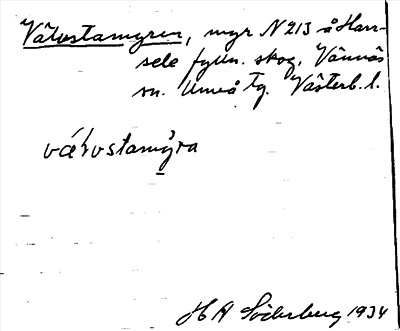 Våtostamyren, myr N 213 å Harr-
sele fyun. skog, Vännäs
sn. Umeå tg. Västerb. l.
våtostamyra
H A Söderberg 1934